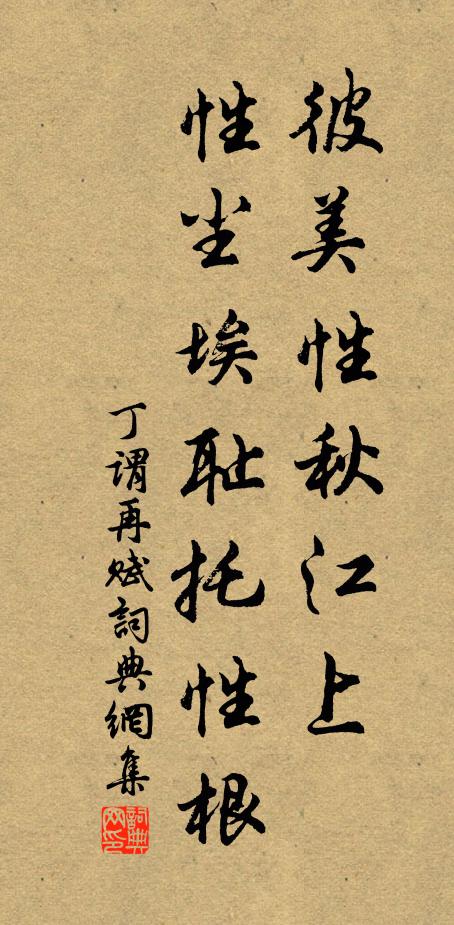 彼美性秋江上
性尘埃耻托性根
丁谓再赋詞典網集
詞典網印